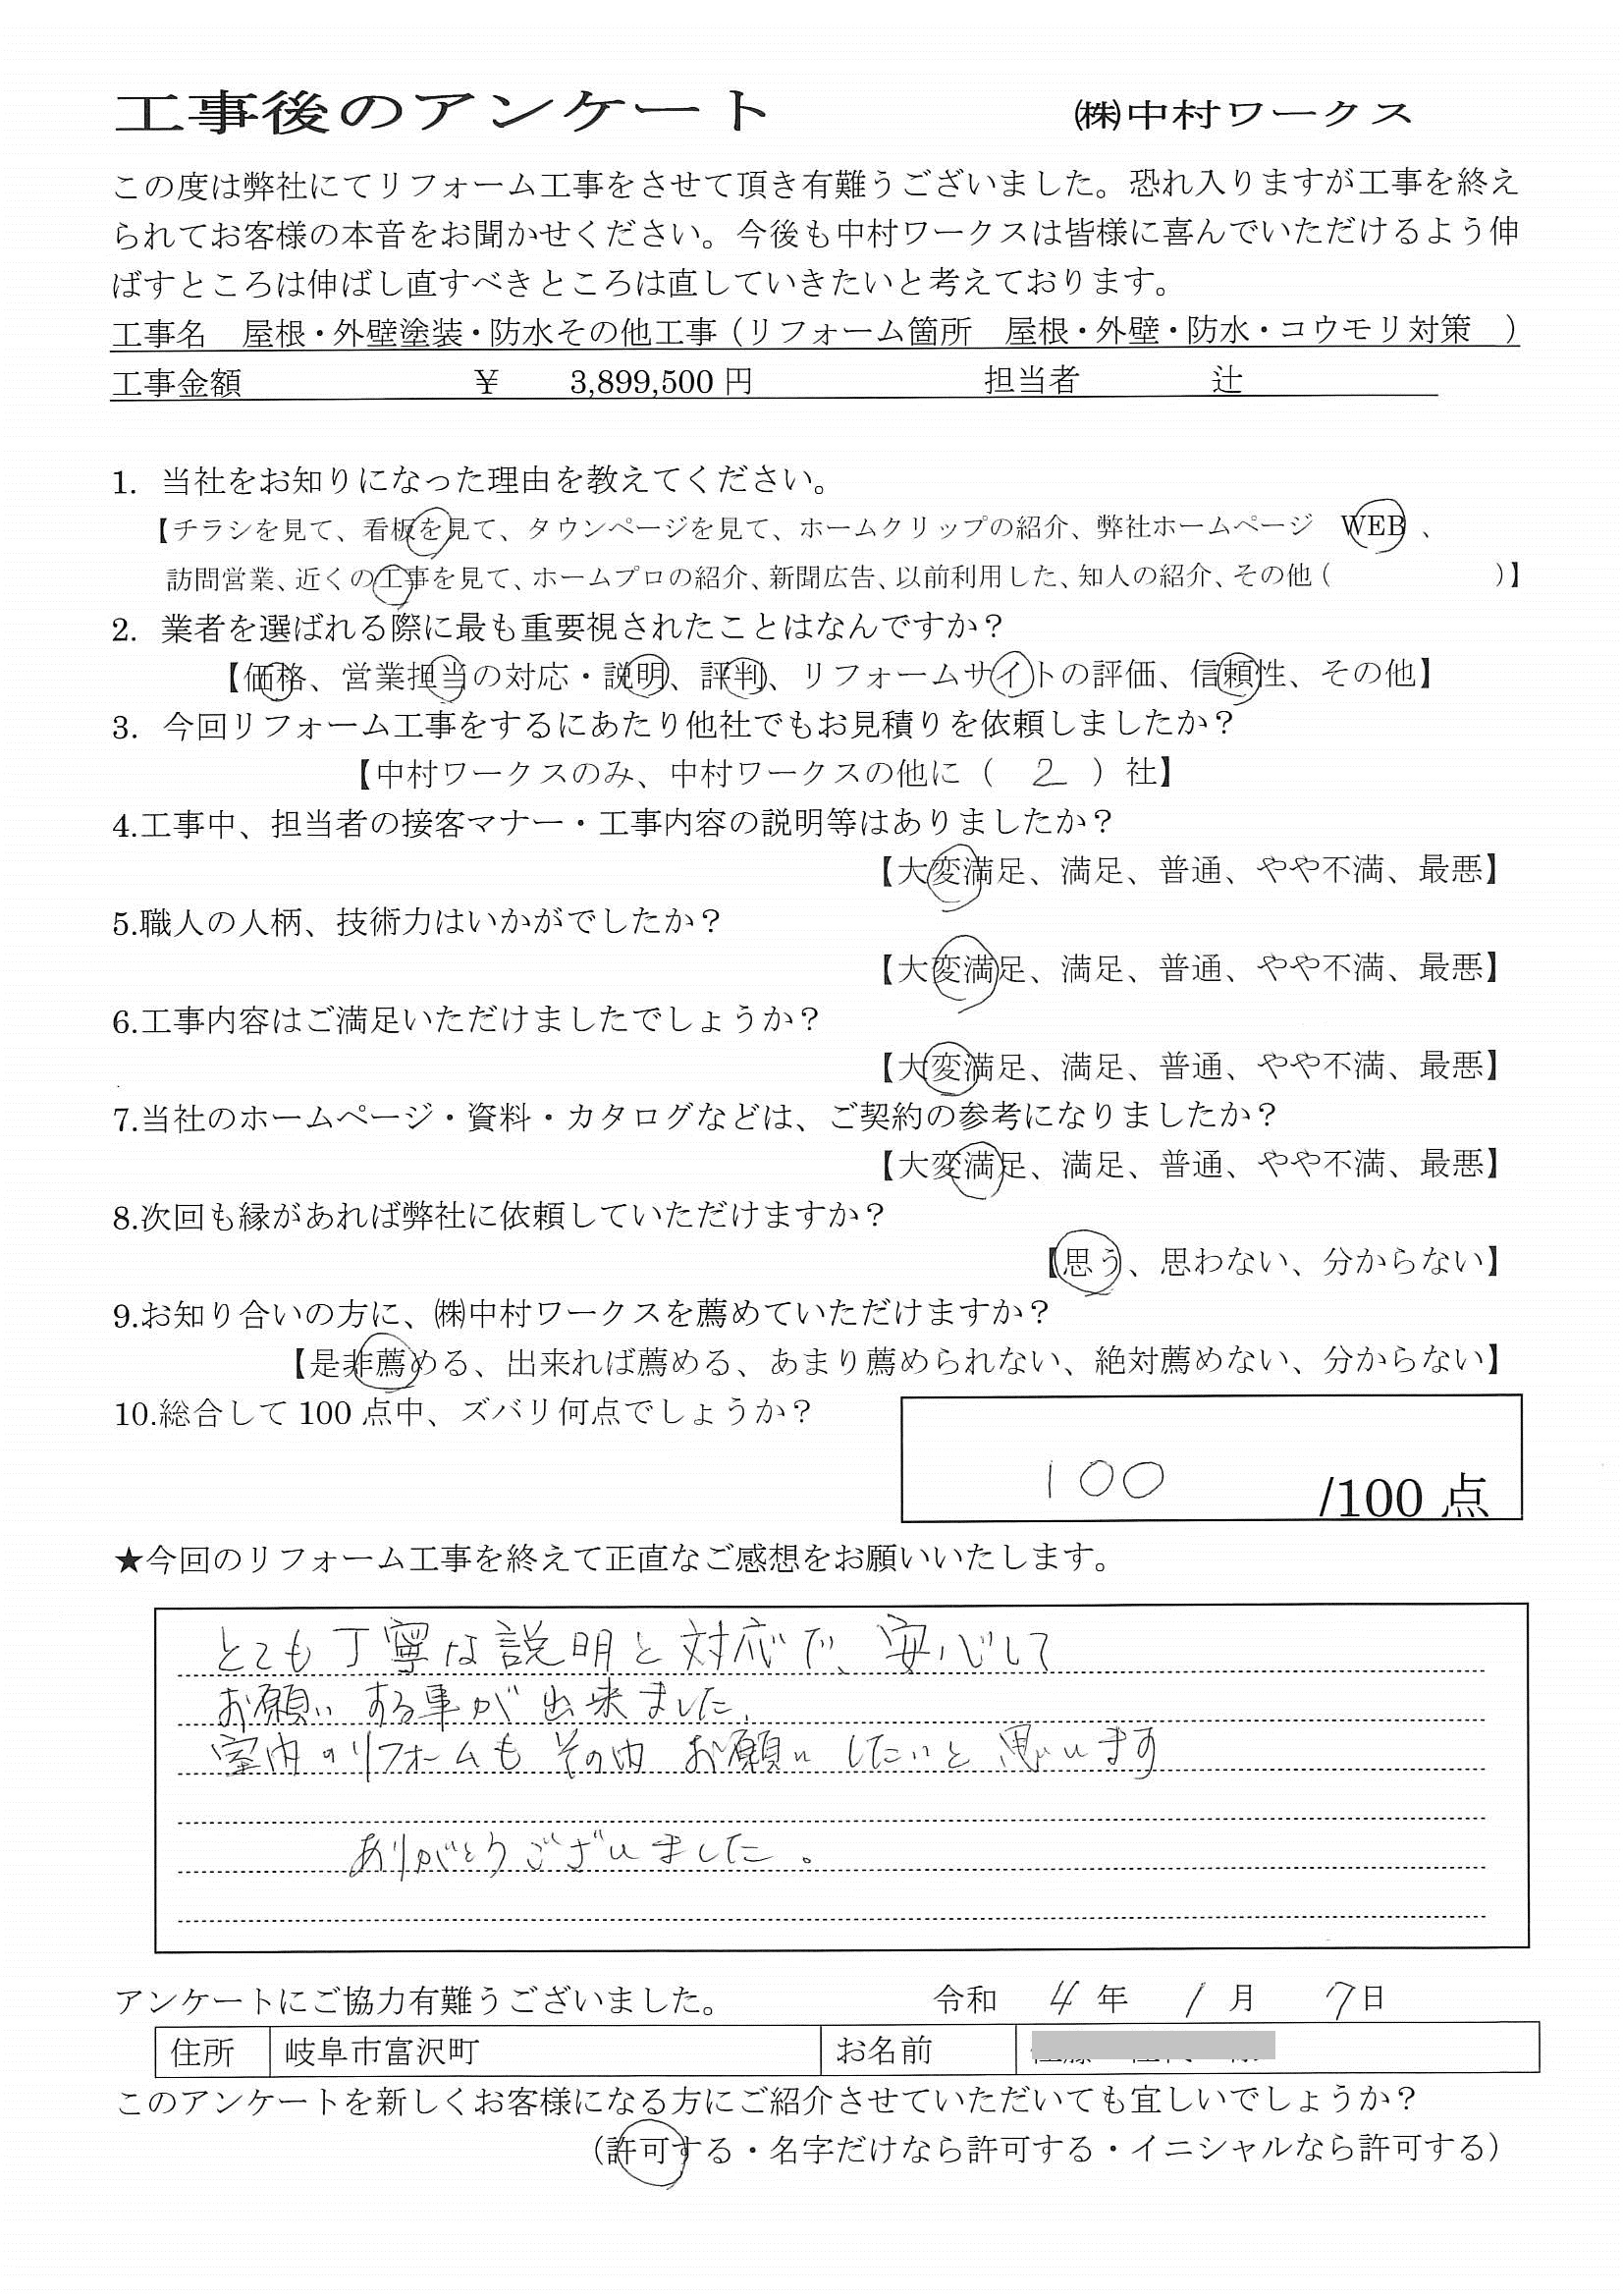 工事後のアンケート　㈱中村ワークス
この度は弊社にてリフォーム工事をさせて頂き有難うございました。恐れ入りますが工事を終え
られてお客様の本音をお聞かせください。今後も中村ワークスは皆様に喜んでいただけるよう伸
ばすところは伸ばし直すべきところは直していきたいと考えております。
工事名　屋根・外壁塗装・防水その他工事（リフォーム箇所　屋根・外壁・防水・コウモリ対策　）
工事金額　￥　3,899,500 円　担当者　辻
1.　当社をお知りになった理由を教えてください。
【チラシを見て、看板を見て、タウンページを見て、ホームクリップの紹介、弊社ホームページ　WEB 、
訪問営業、近くの工事を見て、ホームプロの紹介、新聞広告、以前利用した、知人の紹介、その他（　　　　）】
2.　業者を選ばれる際に最も重要視されたことはなんですか？
【価格、営業担当の対応・説明、評判、リフォームサイトの評価、信頼性、その他】
3.　今回リフォーム工事をするにあたり他社でもお見積りを依頼しましたか？
【中村ワークスのみ、中村ワークスの他に（　2　）社】
4.工事中、担当者の接客マナー・工事内容の説明等はありましたか？
【大変満足、満足、普通、やや不満、最悪】
5.職人の人柄、技術力はいかがでしたか？
【大変満足、満足、普通、やや不満、最悪】
6.工事内容はご満足いただけましたでしょうか？
【大変満足、満足、普通、やや不満、最悪】
7.当社のホームページ・資料・カタログなどは、ご契約の参考になりましたか？
【大変満足、満足、普通、やや不満、最悪】
8.次回も縁があれば弊社に依頼していただけますか？
【思う、思わない、分からない】
9.お知り合いの方に、㈱中村ワークスを薦めていただけますか？
【是非薦める、出来れば薦める、あまり薦められない、絶対薦めない、分からない】
10.総合して 100 点中、ズバリ何点でしょうか？
100 /100 点
★今回のリフォーム工事を終えて正直なご感想をお願いいたします。
とても丁寧な説明と対応で、安心して
お願いする事が出来ました、
室内のリフォームもその内お願いしたいと思います
ありがとうございました。
アンケートにご協力有難うございました。　令和　4　年　1　月　7日
住所　岐阜市富沢町　お名前
このアンケートを新しくお客様になる方にご紹介させていただいても宜しいでしょうか？
（許可する・名字だけなら許可する・イニシャルなら許可する）